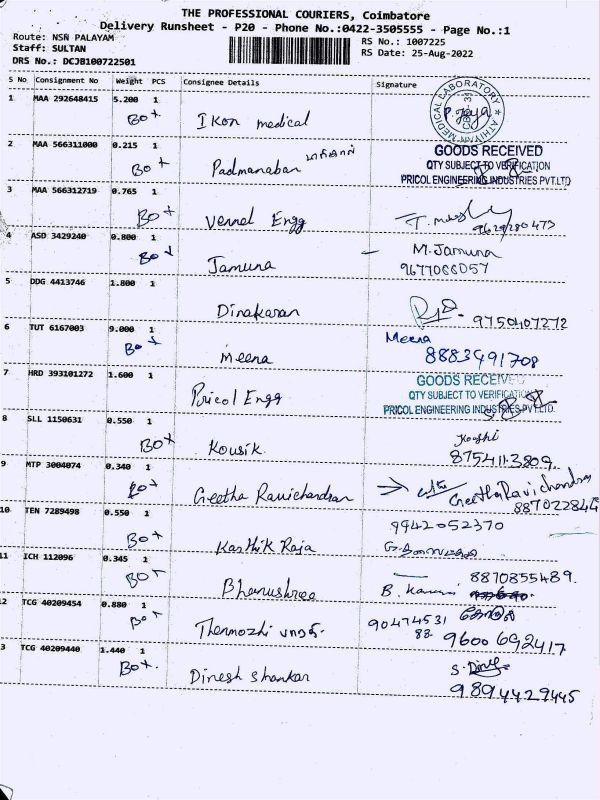 THE PROFESSIONAL COURIERS, Coimbatore
Delivery Runsheet - P20 - Phone No.:0422-3505555 - Page No.:1
Route: NSN PALAYAM
Staff: SULTAN
DRS No.: DCJB100722501
RS No.: 1007225
RS Date: 25-Aug-2022
S No Consignment No Weight PCS Consignee Details Signature
1 MAA 292648415 5.200 1
Box Ikon medical P. Jaya
MEDICAL LABORATORY
2 MAA 566311000 0.215 1
Box Padmanaban
GOODS RECEIVED
QTY SUBJECT TO VERIFICATION
PRICOL ENGINEERING INDUSTRIES PVT.LTD
3 MAA 566312719 0.765 1
Box Vennel Engg
9629280473
4 ASD 3429240 0.800 1
Box Jamuna M. Jamuna
9677066057
5 DDG 4413746 1.800 1
Dinakaran 9750407272
6 TUT 6167003 9.000 1
Box Meena Meena
8883491708
7 HRD 393101272 1.600 1
Pricol Engg
GOODS RECEIVED
QTY SUBJECT TO VERIFICATION
PRICOL ENGINEERING INDUSTRIES PVT.LTD.
8 SLL 1150631 0.550 1
Box Kousik
8754113809
9 MTP 3004074 0.340 1
Box Geetha Ravichandran Geetha Ravichandran
10 TEN 7289498 0.550 1
Box Karthik Raja 9942052370
11 ICH 112096 0.345 1
Box Bhanushree 8870855489.
12 TCG 40209454 0.880 1
Box Thenmozhi 90474531
88 9600692417
3 TCG 40209440 1.440 1
Box Dinesh Shankar S. Dinesh
9894429445